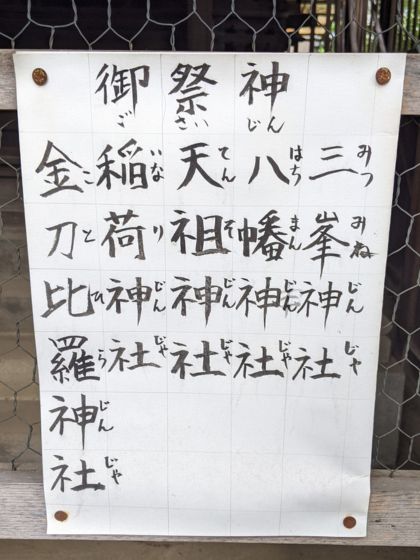 御祭神
ごさいじん
三峯神社
みつみねじんじゃ
八幡神社
はちまんじんじゃ
天祖神社
てんそじんじゃ
稲荷神社
いなりじんじゃ
金刀比羅神社
ことひらじんじゃ